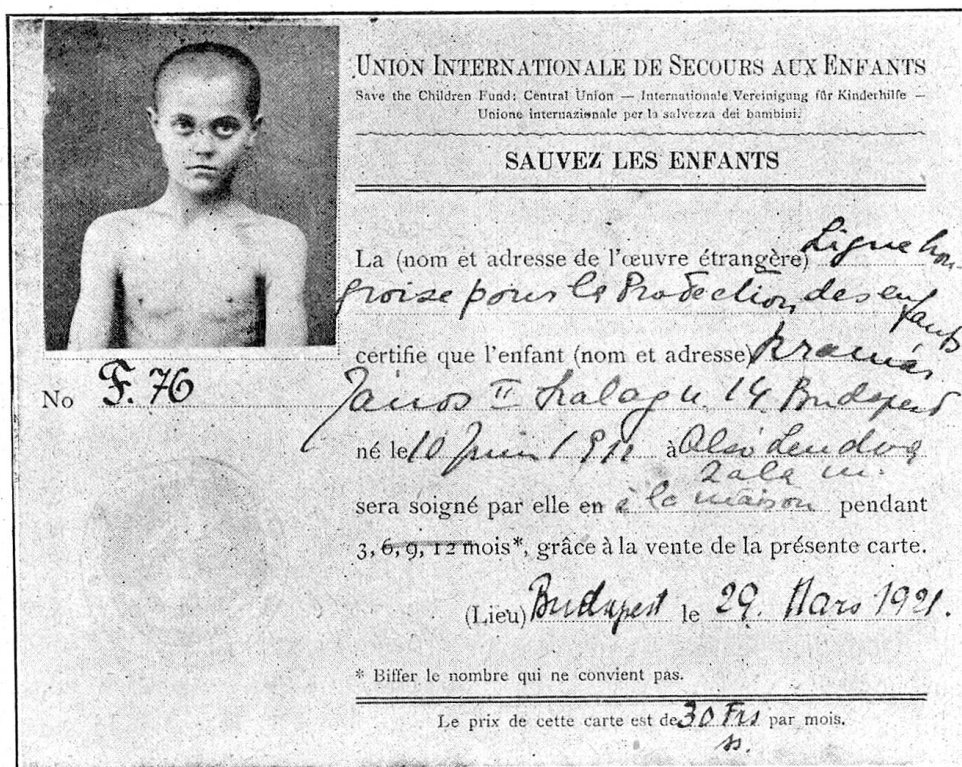 UNION INTERNATIONALE DE SECOURS AUX ENFANTS
Save the Children Fund: Central Union — Internationale Vereinigung für Kinderhilfe —
Unione internazionale per la salvezza dei bambini.
SAUVEZ LES ENFANTS
La (nom et adresse de l'œuvre étrangère) Ligue hon-
groise pour la Protection des enfants
certifie que l'enfant (nom et adresse)
No F. 76
János II 14. Budapest
né le 10 Juin 1911 à Alsó Lendva
Zala m.
sera soigné par elle en à la maison pendant
3, 6, 9, 12 mois*, grâce à la vente de la présente carte.
(Lieu) Budapest le 29. Mars 1921.
* Biffer le nombre qui ne convient pas.
Le prix de cette carte est de 30 Frs par mois.